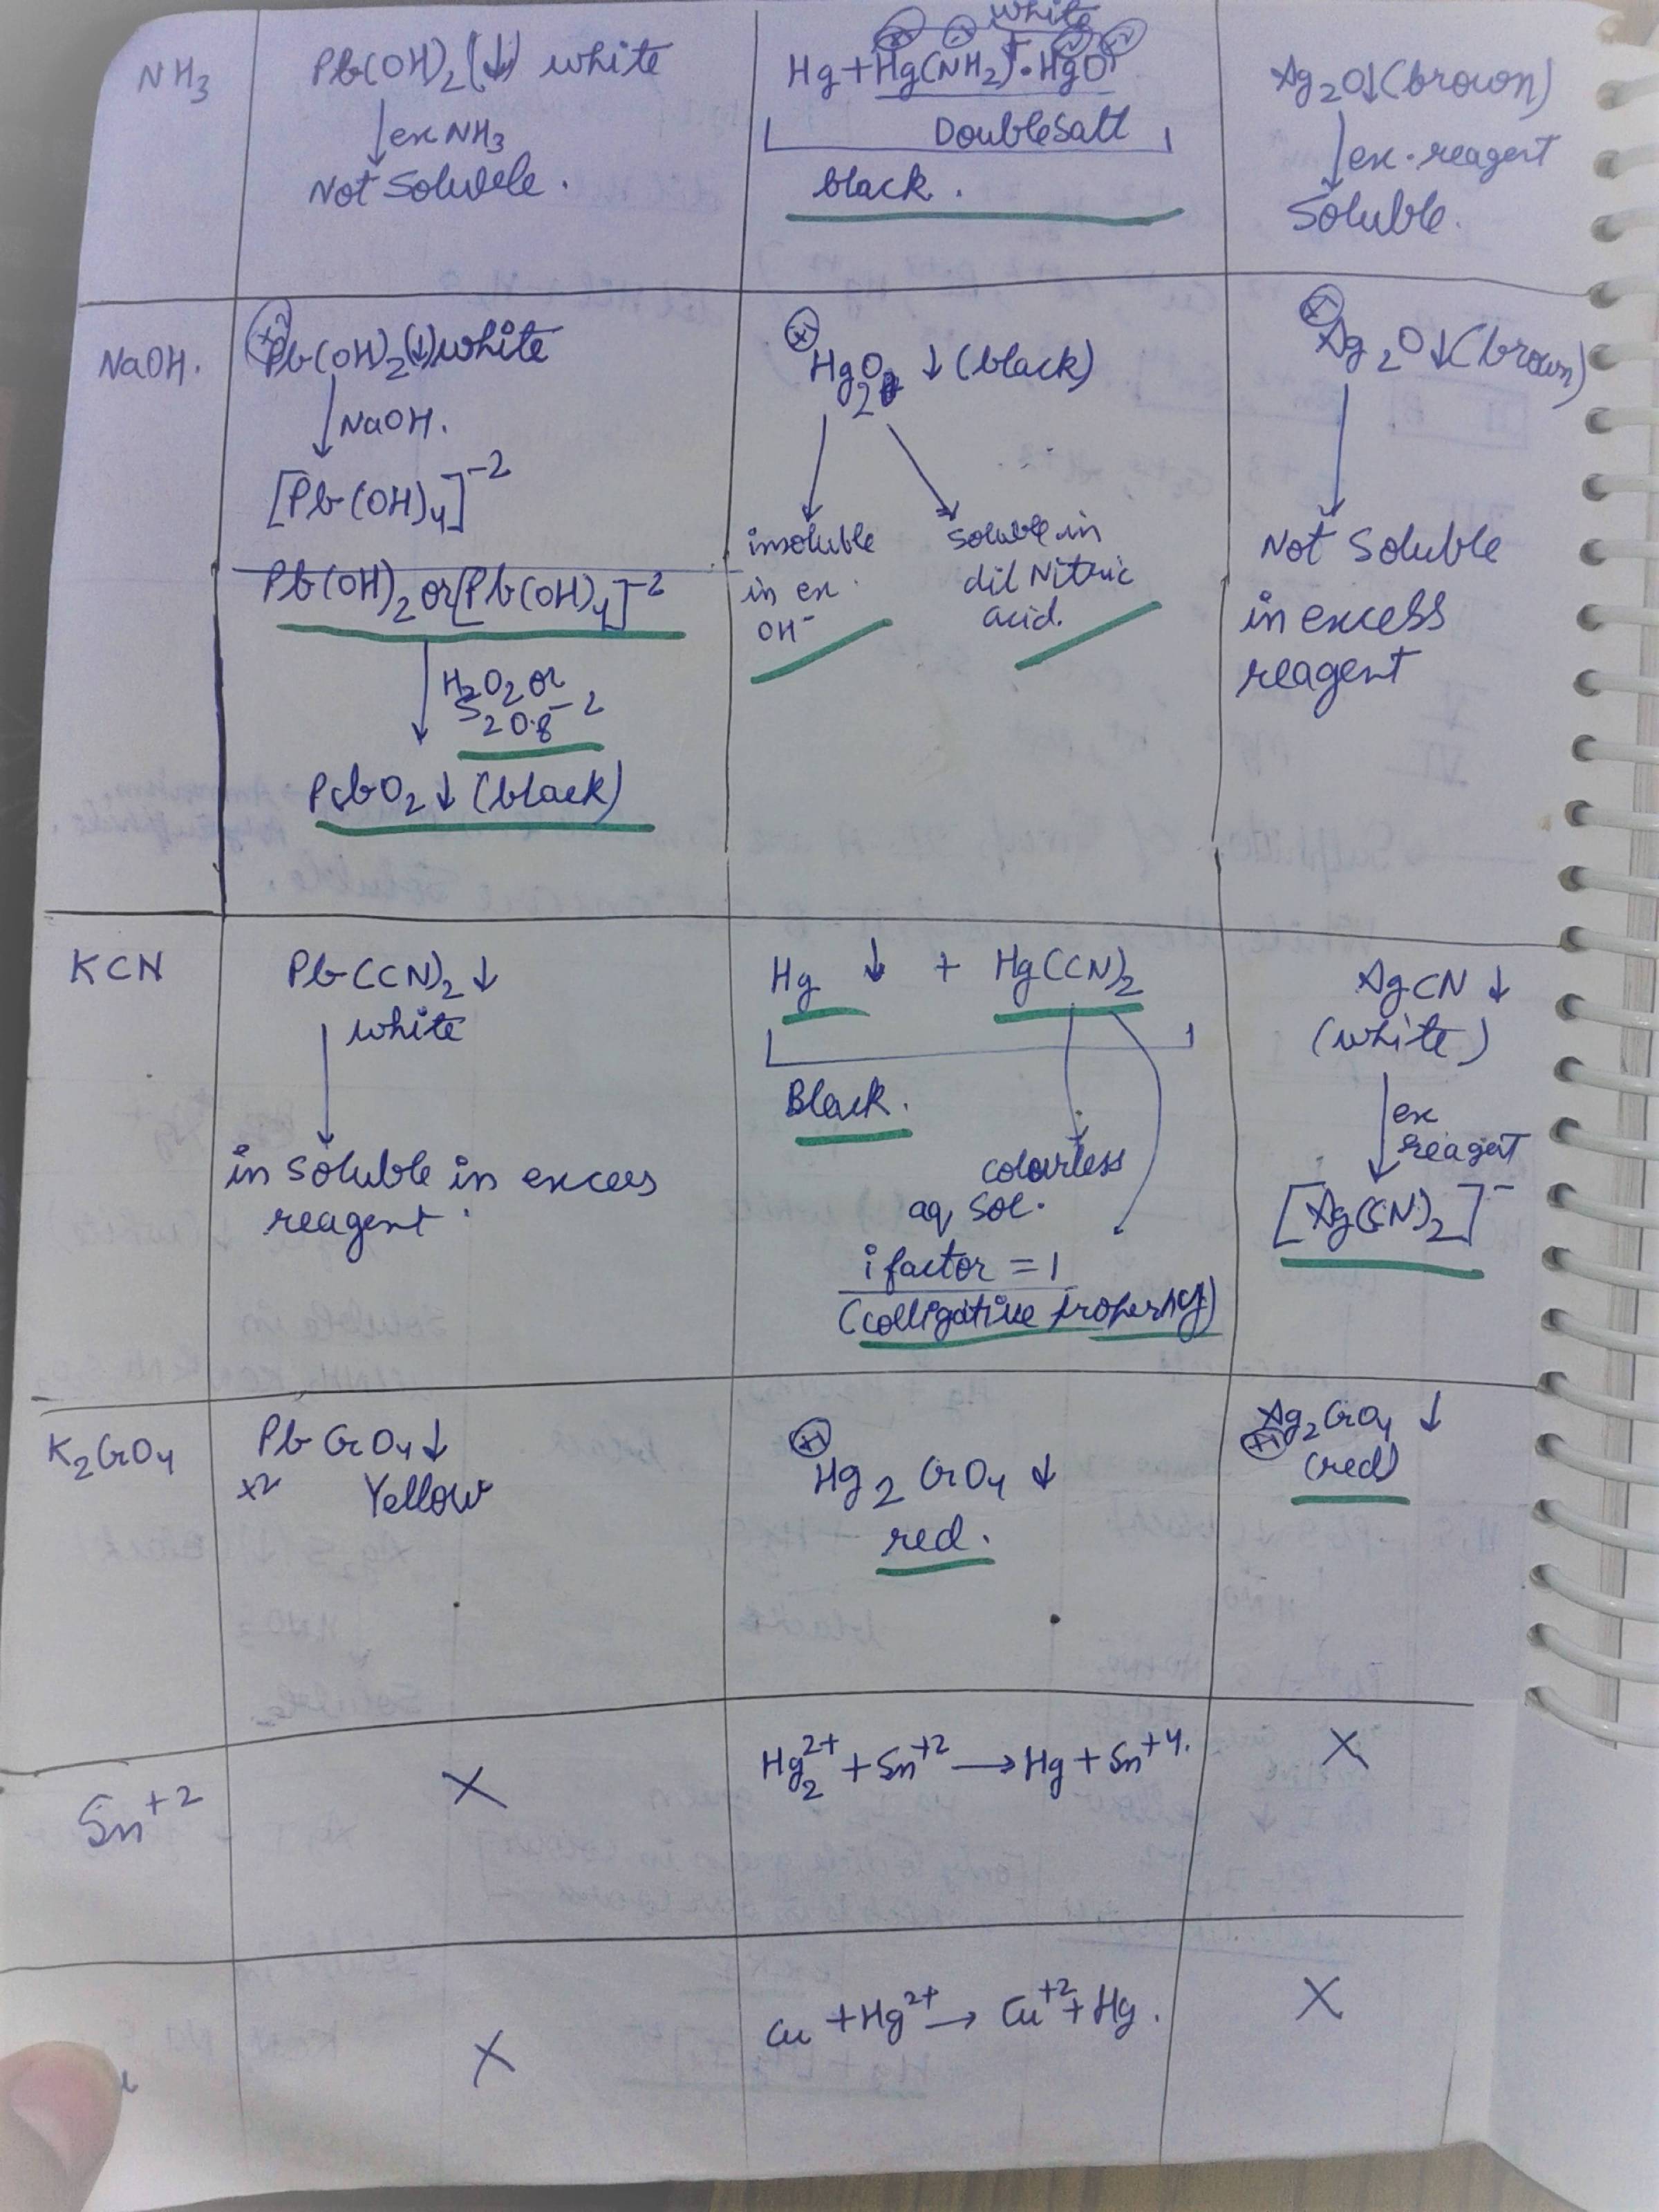 NH3
Pb(OH)2(↓) white
↓ex NH3
Not Soluble.
white
Hg+Hg(NH2)·HgO
DoubleSalt
black.
Ag2O↓(brown)
↓ex. reagent
Soluble.
NaOH.
+2
Pb(OH)2(↓)white
↓NaOH.
[Pb(OH)4]-2
Pb(OH)2 or [Pb(OH)4]-2
↓H2O2 or
S2O8-2
PbO2↓(black)
+1
Hg2O ↓(black)
insoluble
in ex
OH-
soluble in
dil Nitric
acid.
+1
Ag2O↓(brown)
Not Soluble
in excess
reagent
KCN
Pb(CN)2↓
white
insoluble in excess
reagent.
Hg ↓ + Hg(CN)2
Black.
colourless
aq sol.
i factor = 1
(colligative property)
AgCN↓
(white)
↓ex
reagent
[Ag(CN)2]-
K2CrO4
PbCrO4↓
+2 Yellow
+1
Hg2CrO4↓
red.
Ag2CrO4↓
+1
(red)
Sn+2
X
Hg2 2+ + Sn+2 → Hg + Sn+4.
X
X
Cu + Hg2+ → Cu+2 + Hg.
X